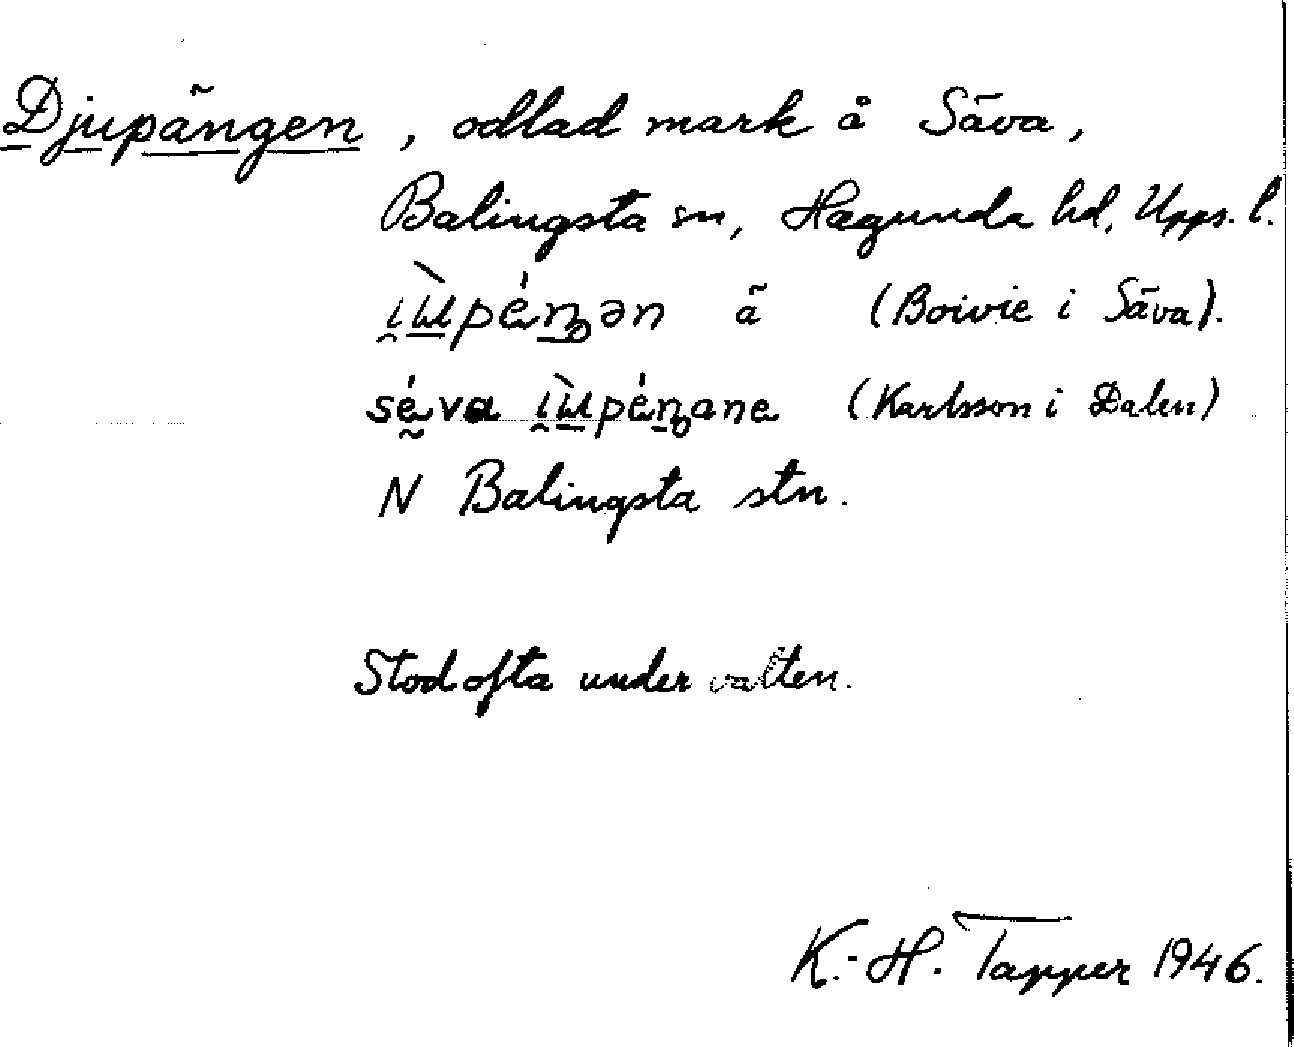 Djupängen, odlad mark å Säva,
Balingsta sn, Hagunda hd, Upps. l.
ä (Boivie i Säva).
(Karlsson i Dalen)
N Balingsta stn.
Stod ofta under vatten.
K.-H. Tapper 1946.